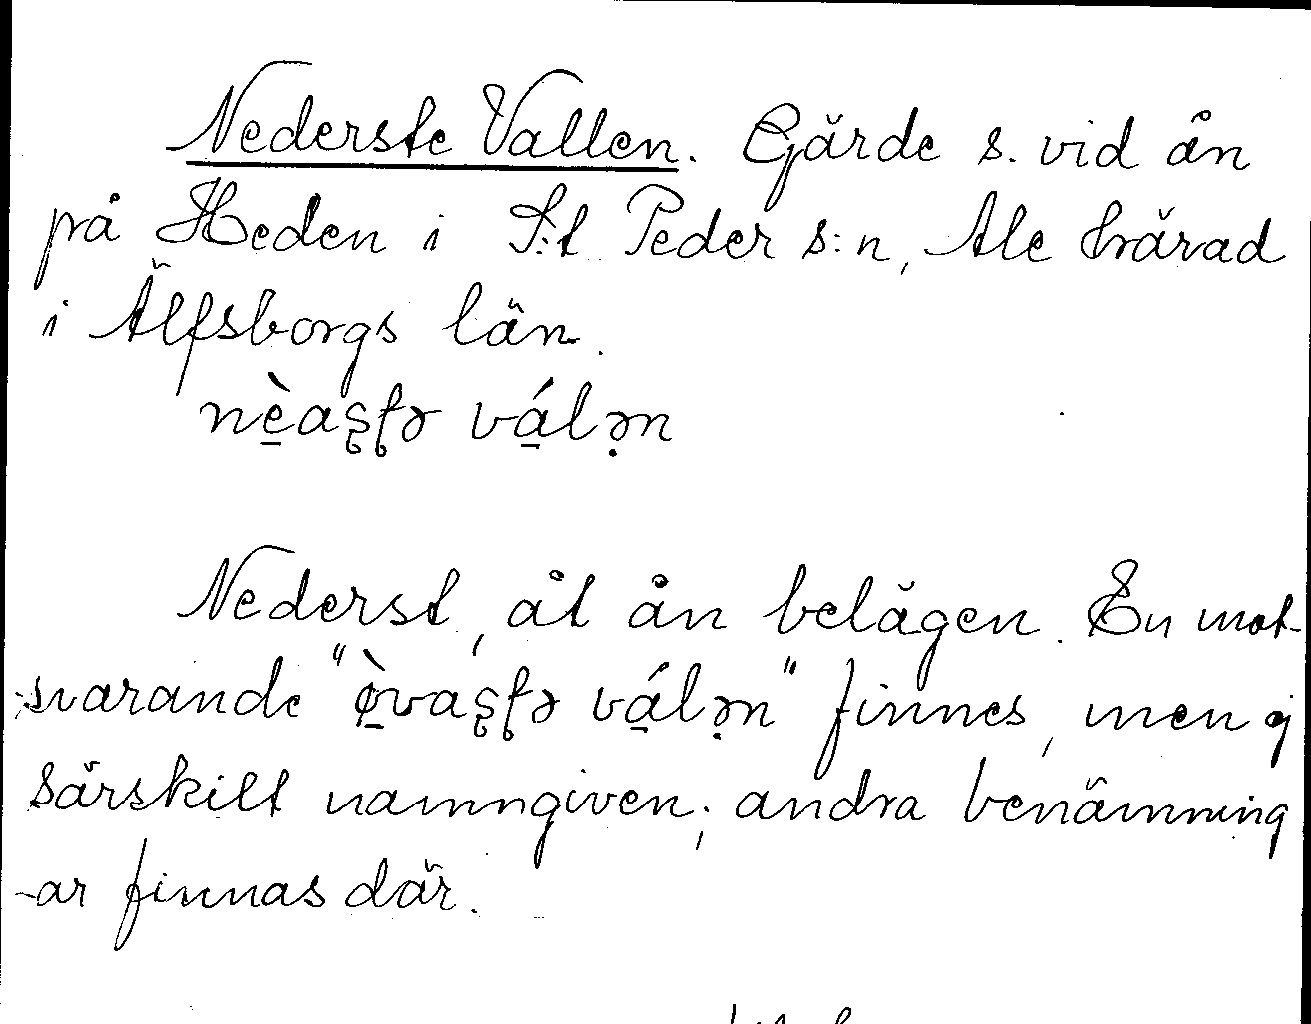 Nederste Vallen. Gärde s. vid ån
på Heden i S:t Peder s:n, Ale härad
i Älfsborgs län.
nè̱aʂʈə vá̱lə̣n
Nederst, åt ån belägen. En mot-
svarande "ø̱̀vaʂʈə vá̱lə̣n" finnes, men ej
särskilt namngiven; andra benämning
-ar finnas där.